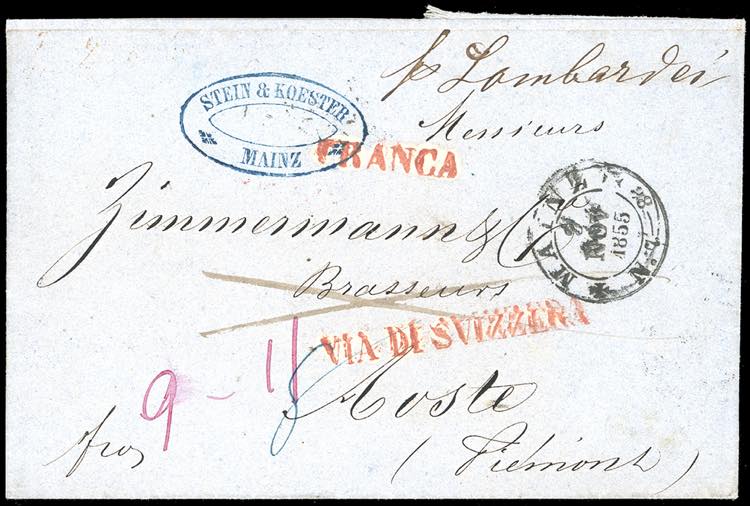 pr Lombardei
STEIN & KOESTER
MAINZ
Messieurs
FRANCA
Zimmermann & Cie
MAINZ
9
NOV
1855
Brasseurs
VIA DI SVIZZERA
9 - 11
8
Aoste
fro
(Piémont)